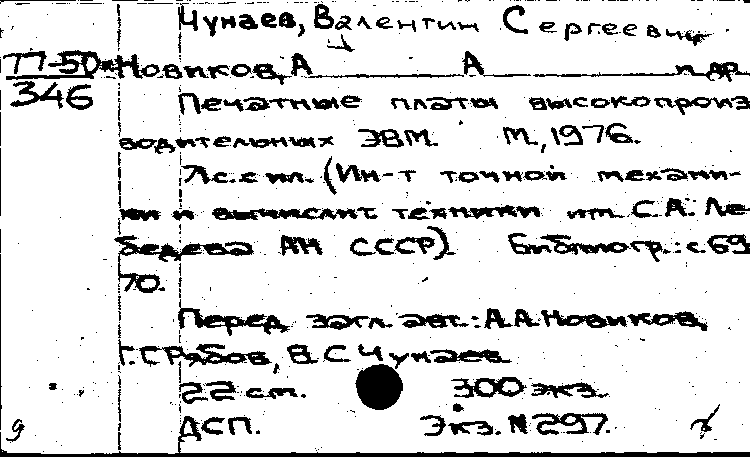 Чунаев, Валентин Сергеевич
П7-50
Новиков, А А и др
346
Печатные платы высокопроиз
водительных ЭВМ. М., 1976.
с. с ил. (Ин-т точной механи-
ки и вычислит техники им. С.А. Ле-
бедева АН СССР) Библиогр.: с. 69
70.
Перед загл. авт.: А.А. Новиков,
Г.С Рябов, В.С Чунаев
22 см. 300 экз.
ДСП. Экз. № 297.
9